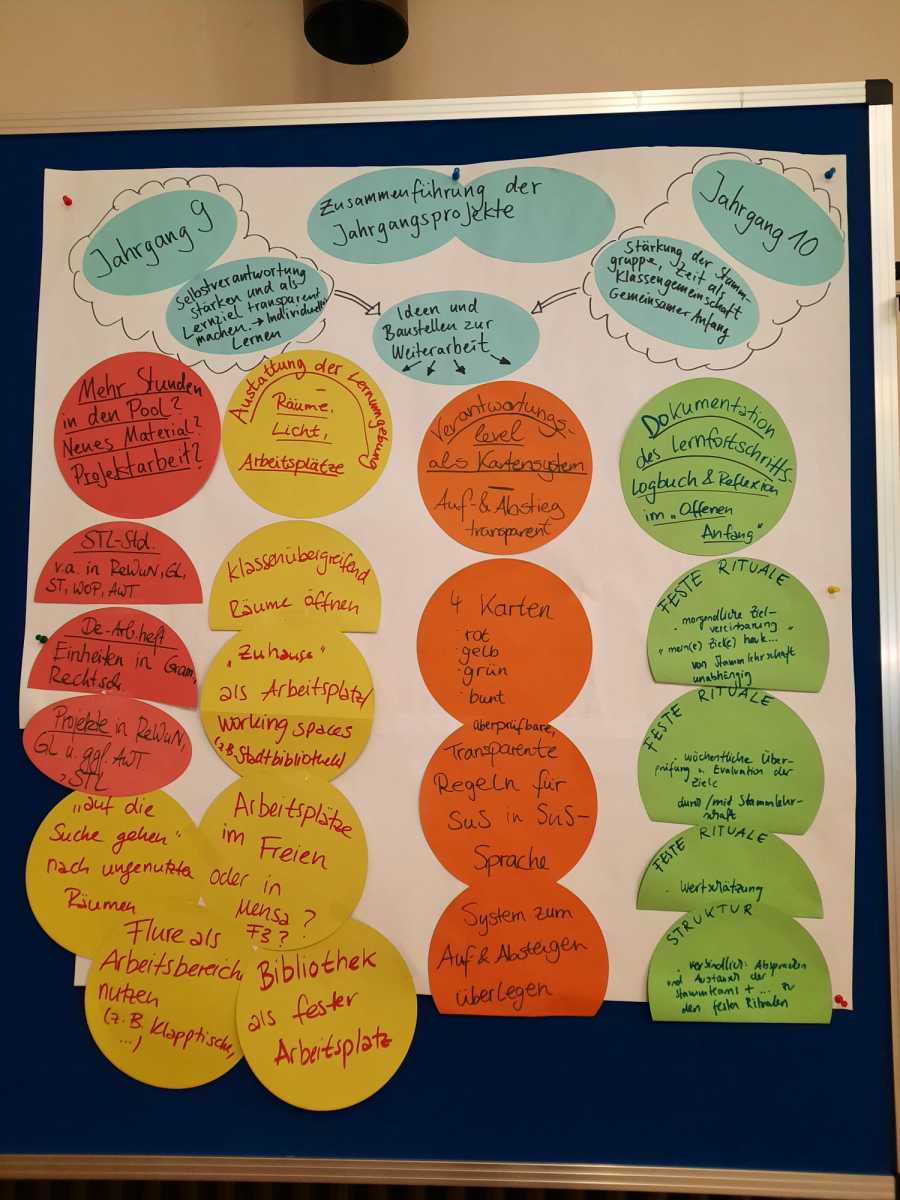 Zusammenführung der
Jahrgangsprojekte
Jahrgang 9
Selbstverantwortung
stärken und als
Lernziel transparent
machen. → Individuelles
Lernen
Jahrgang 10
Stärkung der Stamm-
gruppe, Zeit als
Klassengemeinschaft
Gemeinsamer Anfang
Ideen und
Baustellen zur
Weiterarbeit
Mehr Stunden
in den Pool?
Neues Material?
Projektarbeit?
STL-Std.
v.a. in ReWuN, GL,
ST, WOP, AWT
De-Arb.heft
Einheiten in Gram.,
Rechtsch.
Projekte in ReWuN,
GL u. ggf. AWT
> STL
Austattung der Lernumgebung
Räume,
Licht,
Arbeitsplätze
Klassenübergreifend
Räume öffnen
"Zuhause"
als Arbeitsplatz/
working spaces
(z.B. Stadtbibliothek)
"auf die
Suche gehen"
nach ungenutzten
Räumen
Arbeitsplätze
im Freien
oder in
Mensa?
F3?
Flure als
Arbeitsbereich
nutzen
(z.B. Klapptische,
...)
Bibliothek
als fester
Arbeitsplatz
Verantwortungs-
level
als Kartensystem
Auf- & Abstieg
transparent
4 Karten
· rot
· gelb
· grün
· bunt
überprüfbare,
Transparente
Regeln für
SuS in SuS-
Sprache
System zum
Auf- & Absteigen
überlegen
Dokumentation
des Lernfortschritts-
Logbuch & Reflexion
im "Offenen
Anfang"
FESTE RITUALE
· morgendliche Ziel-
vereinbarung
"mein(e) Ziel(e) heute..."
von Stammlehrschaft
unabhängig
FESTE RITUALE
· wöchentliche Über-
prüfung u. Evaluation der
Ziele
durch/mit Stammlehr-
schaft
FESTE RITUALE
· Wertschätzung
STRUKTUR
· verbindlich: Absprachen
und Austausch der
Stammteams + ... zu
den festen Ritualen